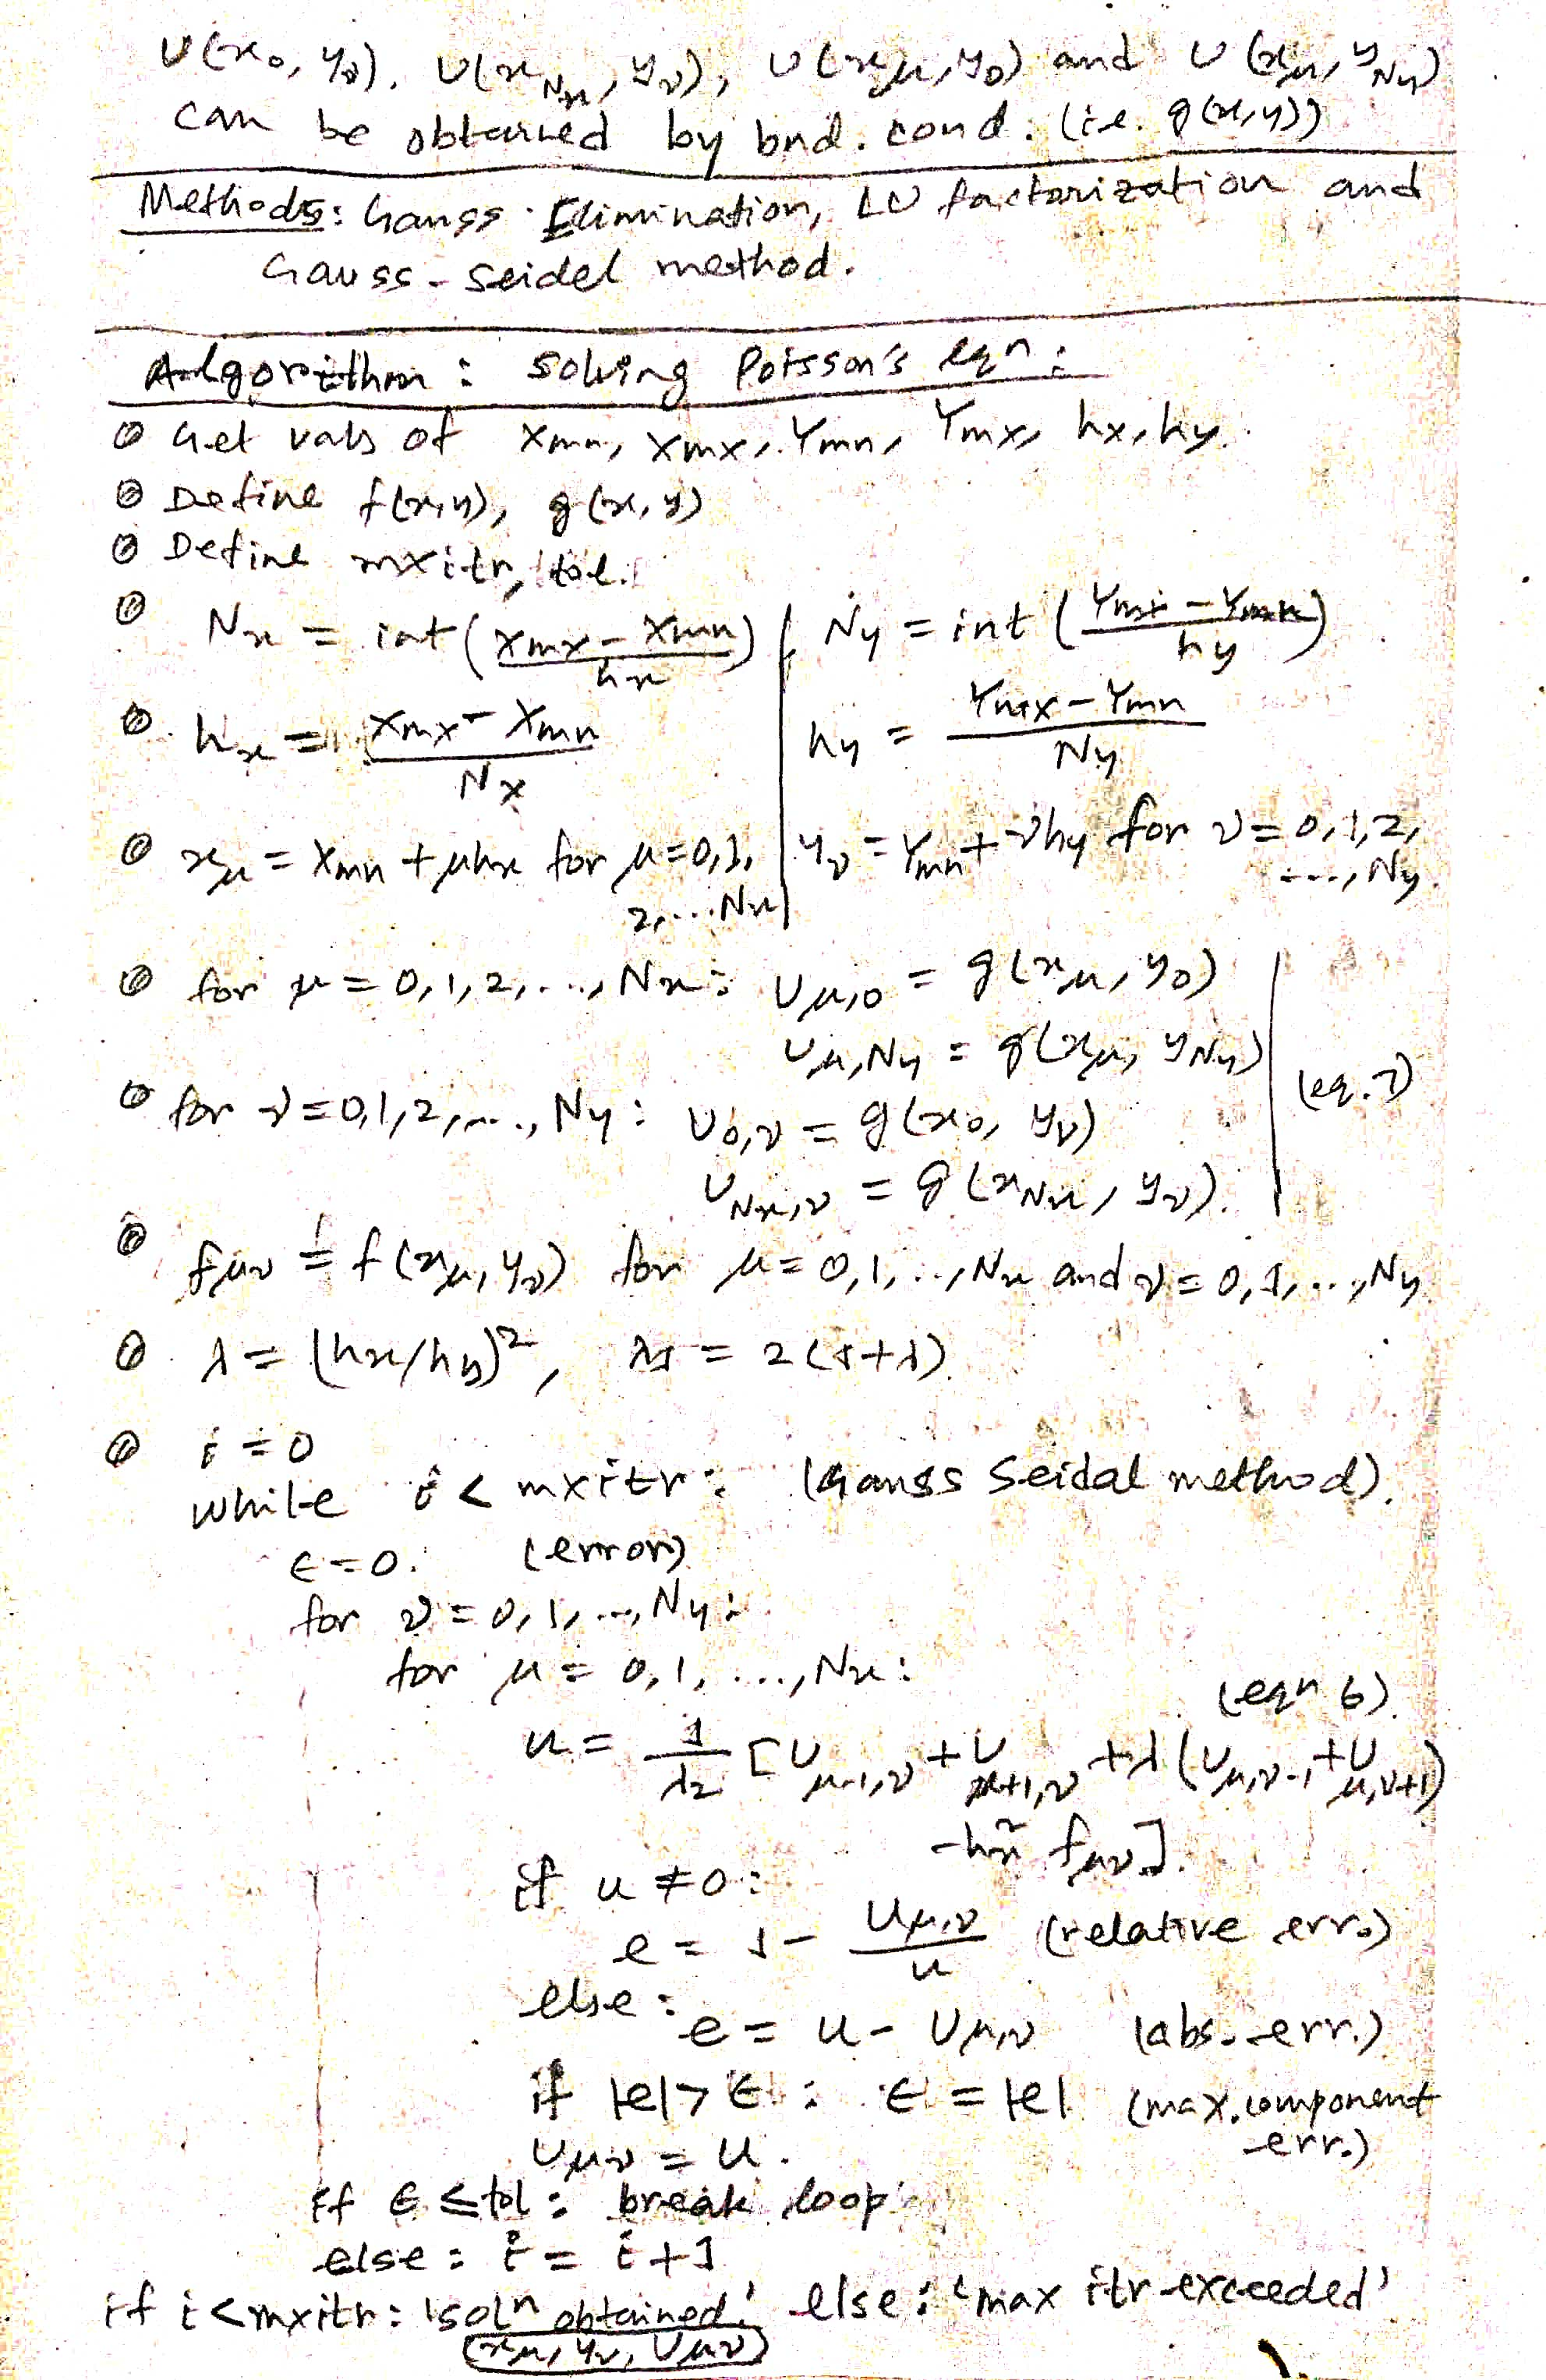 U(x₀, yᵥ), U(x_Nx, yᵥ), U(x_μ, y₀) and U(x_μ, y_Ny)
can be obtained by bnd. cond. (i.e. g(x,y))
Methods: Gauss Elimination, LU factorization and
Gauss-Seidel method.
Algorithm: Solving Poisson's eqn:
Get vals of Xmn, Xmx, Ymn, Ymx, hx, hy.
Define f(x,y), g(x,y)
Define mxitr, tol.
Nx = int((Xmx - Xmn)/hx) | Ny = int((Ymx - Ymn)/hy)
hx = (Xmx - Xmn)/Nx | hy = (Ymx - Ymn)/Ny
x_μ = Xmn + μhx for μ=0,1, 2,...Nx | y_ν = Ymn + νhy for ν=0,1,2, ..., Ny.
for μ = 0,1,2,..., Nx: U_μ,0 = g(x_μ, y₀)
U_μ,Ny = g(x_μ, y_Ny)
(eq. 7)
for ν=0,1,2,..., Ny: U_0,ν = g(x₀, y_ν)
U_Nx,ν = g(x_Nx, y_ν).
f_μν = f(x_μ, y_ν) for μ=0,1,..,Nx and ν=0,1,..,Ny
λ = (hx/hy)², λ1 = 2(1+λ)
i = 0
while i < mxitr: (Gauss Seidal method).
ε=0. (error)
for ν=0,1,...,Ny:
for μ = 0,1, ..., Nx:
(eqn 6)
u = 1/λ2 [U_μ-1,ν + U_μ+1,ν + λ(U_μ,ν-1 + U_μ,ν+1)
-hx² f_μν].
if u ≠ 0:
e = 1 - U_μ,ν/u (relative err.)
else:
e = u - U_μ,ν (abs. err.)
if |e| > ε: ε = |e| (max. component
err.)
U_μν = u.
if ε ≤ tol: break loop
else: i = i+1
if i < mxitr: 'solⁿ obtained' else: 'max itr exceeded'
(x_μ, y_ν, U_μν)